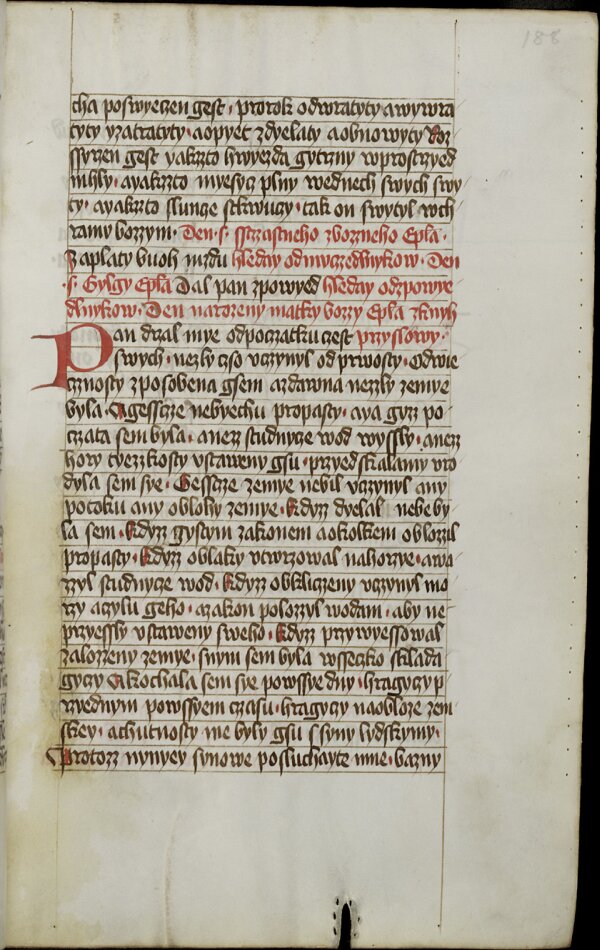 188
cha poswyeczen gest · prorok odwratyty awywra
tyty yzatratyty · aopyet zdyelaty aobnowyty Roz
ssyrzen gest yakzto hwyezda gytrzny wprostrzyed
mhly · ayakzto myesycz plny wednech swych swy
ty · ayakzto slunge sckwucy · tak on swytyl wch
ramy bozzym · Den · s · sstrzastneho zbozneho Epla ·
Zaplaty buoh mzdu hleday odmyczedlnykow · Den
· s · Gylgy Epla Dal pan zpowyed hleday odzpowye
dlnykow · Den narozeny matky bozzy Epla zknyh
Pan drzal mye odpoczatku czest przyslowy ·
swych · nezly czso vczynyl od prwosty · Odwie
cznosty zposobena gsem azdawna nezly zemye
byla · Agesscze nebyechu propasty · aya gyzz po
czata sem byla · anezz studnycze wod wyssly · anezz
hory tyezzkosty vstaweny gsu · przyed skalamy vro
dyla sem sye · Gesscze zemye nebil vczynyl any
potoku any oblohy zemye · Kdyzz dyelal nebe by
la sem · Kdyzz gystym zakonem aokolkem oblozzil
propasty · Kdyzz oblaky vtwrzowal nahorzye · awa
zzyl studnycze wod · Kdyzz obkliczeny vczynyl mo
rzy aczylu geho · azakon polozzyl wodam · aby ne
przyessly vstaweny sweho · Kdyzz przywyessowal
zalozzeny zemye · snym sem byla wsseczko sklada
gyczy Akochala sem sye powssye dny · hragyczy p
rzyednym powssyem czasu · hragyczy naobloze zem
skey · achutnosty me byly gsu s syny lydskymy ·
Protozz nynyey synowe posluchayte mne · bazny